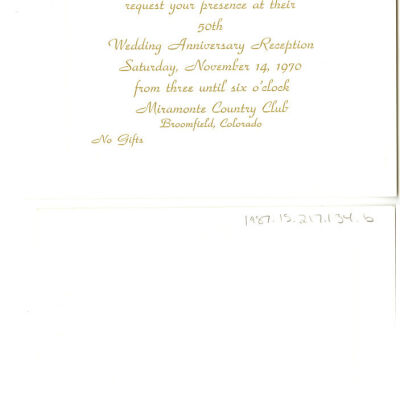 request your presence at their
50th
Wedding Anniversary Reception
Saturday, November 14, 1970
from three until six o'clock
Miramonte Country Club
Broomfield, Colorado
No Gifts
1987.15.217.134.b